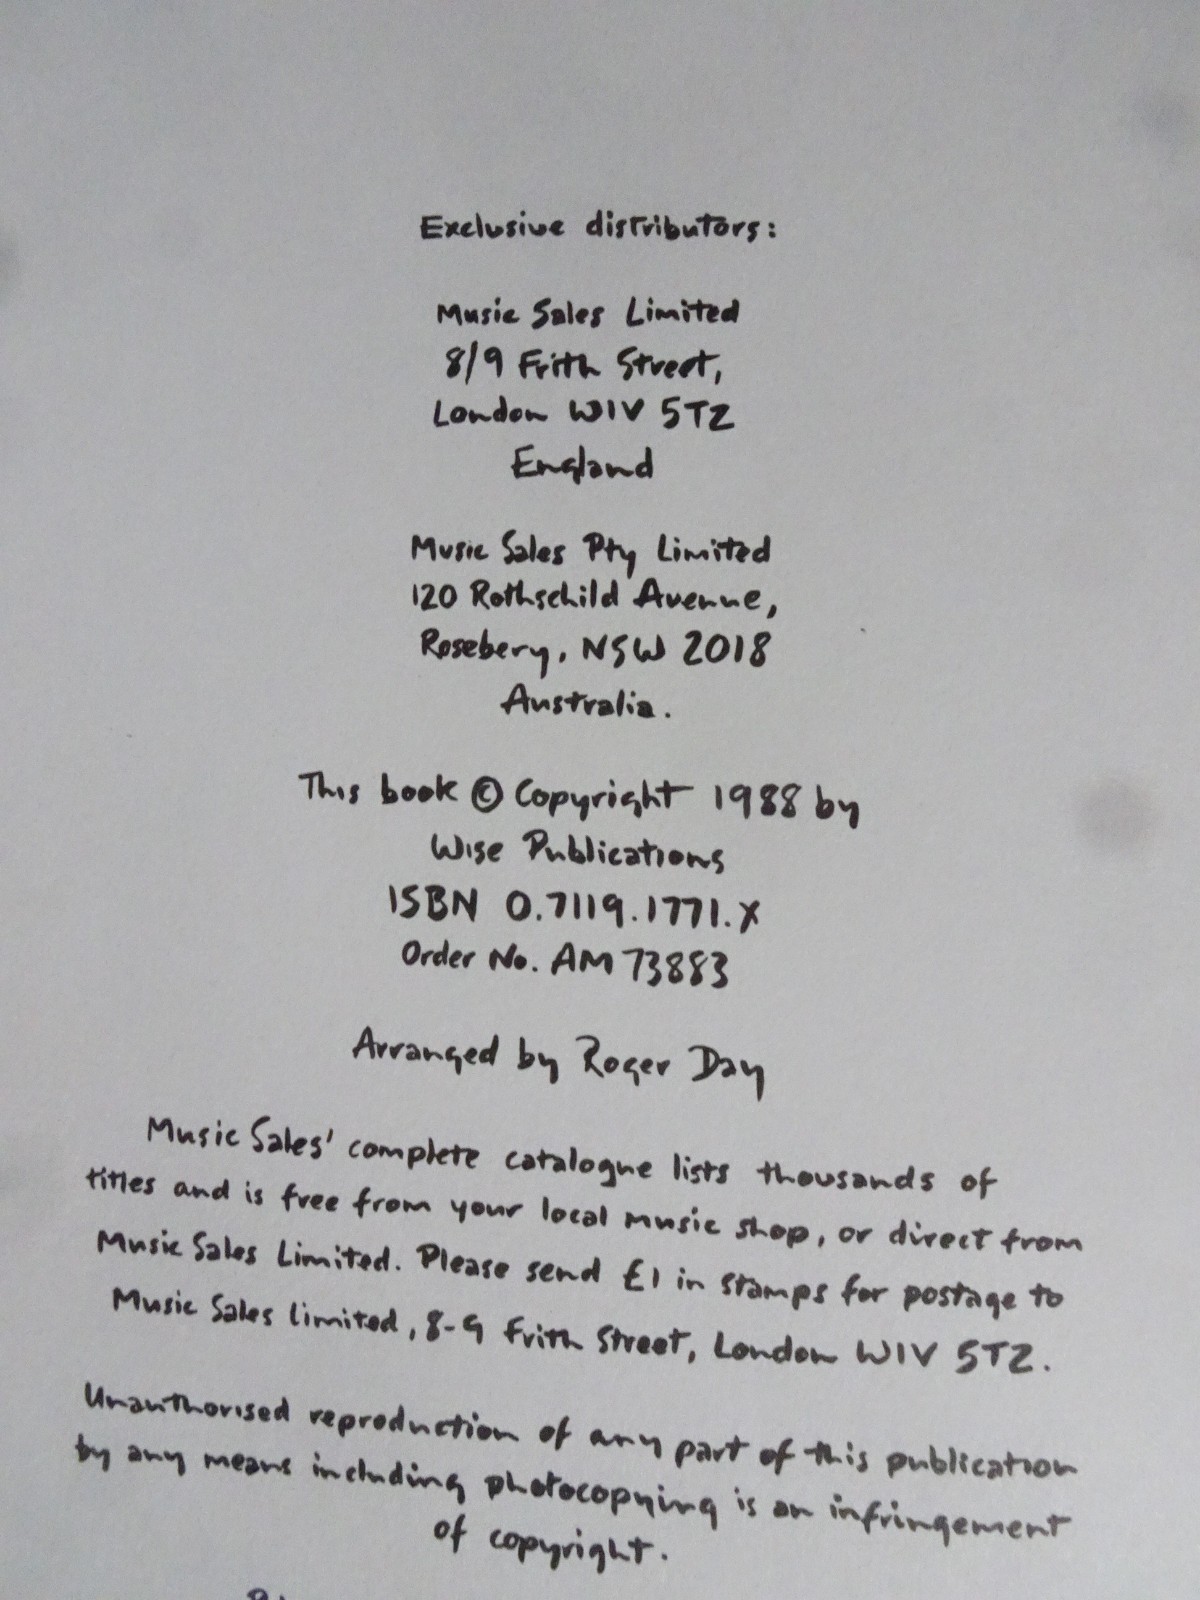 Exclusive distributors:
Music Sales Limited
8/9 Frith Street,
London W1V 5TZ
England
Music Sales Pty Limited
120 Rothschild Avenue,
Rosebery, NSW 2018
Australia.
This book © Copyright 1988 by
Wise Publications
ISBN 0.7119.1771.X
Order No. AM 73883
Arranged by Roger Day
Music Sales' complete catalogue lists thousands of
titles and is free from your local music shop, or direct from
Music Sales Limited. Please send £1 in stamps for postage to
Music Sales Limited, 8-9 Frith Street, London W1V 5TZ.
Unauthorised reproduction of any part of this publication
by any means including photocopying is an infringement
of copyright.